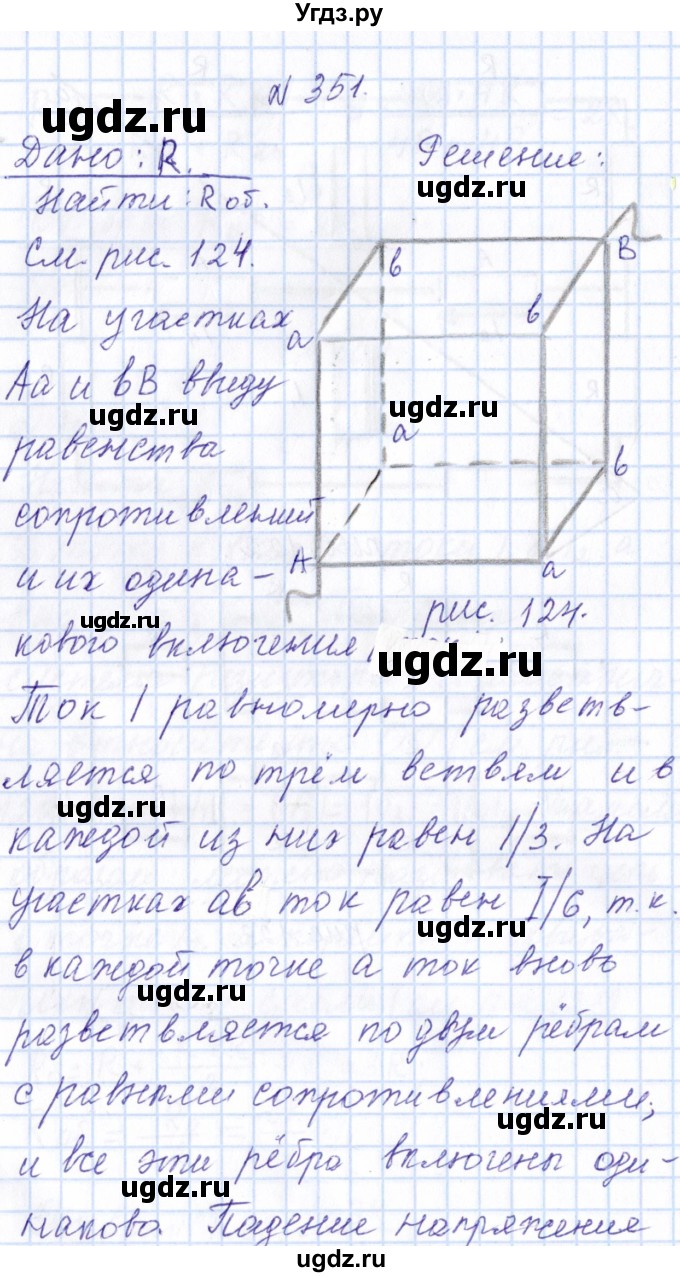 Угдз.ру
N 351.
ugdz.ru
Дано: R.
Решение:
ugdz.ru
Найти: R об.
См. рис. 124.
в
B
На участках
а
в
Aa и вB ввиду
ugdz.ru
ugdz.ru
равенства
а
в
сопротивлений
и их одина-
A
а
ugdz.ru
рис. 124.
кового включения,
ugdz.ru
Ток I равномерно разветв-
ляется по трём ветвям и в
ugdz.ru
каждой из них равен I/3. На
участках ав ток равен I/6, т.к.
ugdz.ru
в каждой точке а ток вновь
ugdz.ru
разветвляется по двум рёбрам
с равными сопротивлениями;
ugdz.ru
и все эти рёбра включены оди-
ugdz.ru
наково. Падение напряжения
ugdz.ru